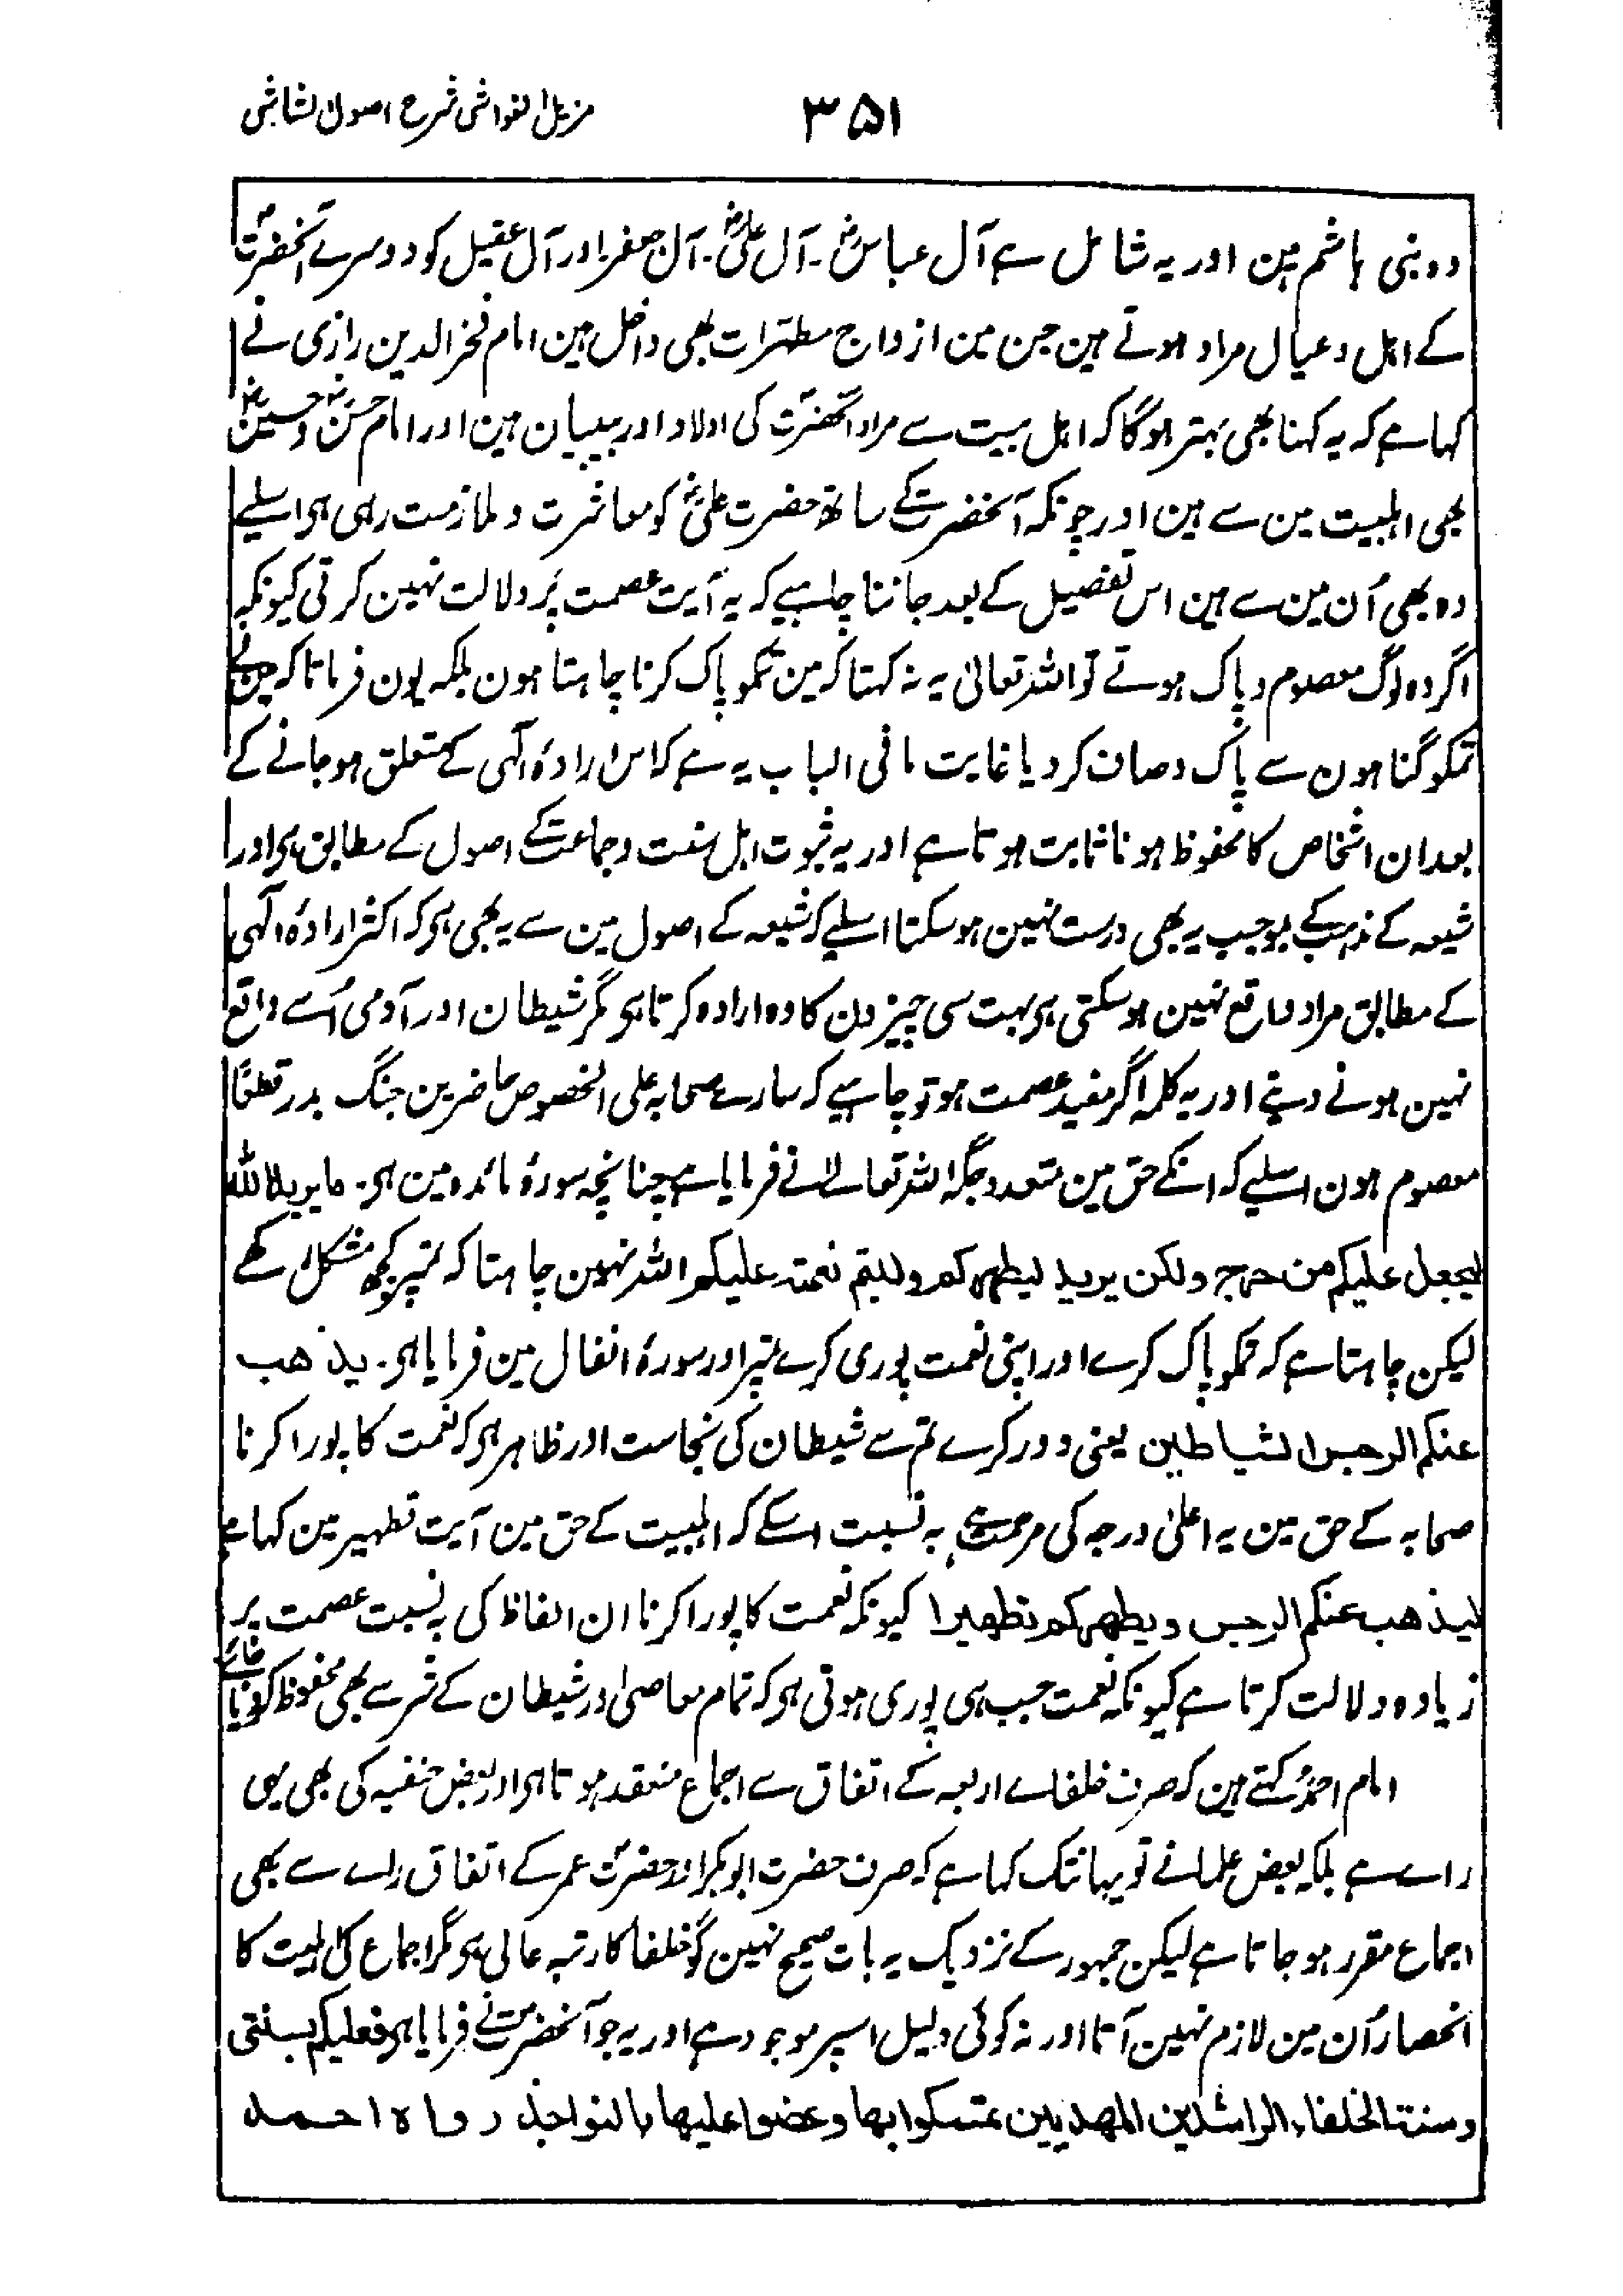 ۳۵۱
مزیل الغواشی شرح اصول الشاشی
وہ بنی ہاشم ہین اور یہ شامل ہے آل عباسؓ۔ آل علیؓ۔ آل جعفر اور آل عقیل کو دوسرے آنحضرتؐ
کے اہل و عیال مراد ہوتے ہین جن مین ازواج مطہرات بھی داخل ہین امام فخر الدین رازی نے
کہا ہے کہ یہ کہنا بھی بہتر ہوگا کہ اہل بیت سے مراد آنحضرتؐ کی اولاد اور بیبیان ہین اور امام حسنؓ وحسینؓ
بھی اہلبیت مین سے ہین اور چونکہ آنحضرتؐ کے ساتھ حضرت علیؓ کو معاشرت و ملازمت رہی ہی اسلیے
وہ بھی اُن مین سے ہین اس تفصیل کے بعد جاننا چاہیے کہ یہ آیت عصمت پر دلالت نہین کرتی کیونکہ
اگر وہ لوگ معصوم و پاک ہوتے تو اللہ تعالیٰ یہ نہ کہتا کہ مین تمکو پاک کرنا چاہتا ہون بلکہ یون فرماتا کہ مین نے
تمکو گناہون سے پاک وصاف کردیا غایت ما فی الباب یہ ہے کہ اس ارادۂ الٰہی کے متعلق ہوجانے کے
بعد ان اشخاص کا محفوظ ہونا ثابت ہوتا ہے اور یہ ثبوت اہل سنت وجماعت کے اصول کے مطابق ہی اور
شیعہ کے مذہب کے بموجب یہ بھی درست نہین ہوسکتا اسلیے کہ شیعہ کے اصول مین سے یہ بھی ہی کہ اکثر ارادۂ الٰہی
کے مطابق مراد واقع نہین ہوسکتی ہی بہت سی چیزون کا وہ ارادہ کرتا ہی مگر شیطان اور آدمی اُسے واقع
نہین ہونے دیتے اور یہ کلمہ اگر مفید عصمت ہو تو چاہیے کہ سارے صحابہ علی الخصوص حاضرین جنگ بدر قطعًا
معصوم ہون اسلیے کہ انکے حق مین متعدد جگہ اللہ تعالےٰ نے فرمایا ہے چنانچہ سورۂ مائدہ مین ہی۔ مایرید اللہ
لیجعل علیکم من حرج ولکن یرید لیطہرکم ولیتم نعمتہ علیکم اللہ نہین چاہتا کہ تمپر کچھ مشکل رکھے
لیکن چاہتا ہے کہ تمکو پاک کرے اور اپنی نعمت پوری کرے تمپر اور سورۂ انفال مین فرمایا ہی۔ یذھب
عنکم الرجس الشیاطین یعنی دور کرے تم سے شیطان کی نجاست اور ظاہر ہی کہ نعمت کا پورا کرنا
صحابہ کے حق مین یہ اعلیٰ درجہ کی مرحمت ہی بہ نسبت اسکے کہ اہلبیت کے حق مین آیت تطہیر مین کہا ہے
لیذھب عنکم الرجس ویطھرکم تطھیرا کیونکہ نعمت کا پورا کرنا ان الفاظ کی بہ نسبت عصمت پر
زیادہ دلالت کرتا ہے کیونکہ نعمت جب ہی پوری ہوتی ہی کہ تمام معاصی اور شیطان کے شر سے بھی محفوظ
امام احمدؒ کہتے ہین کہ صرف خلفاے اربعہ کے اتفاق سے اجماع منعقد ہوتا ہی اور بعض حنفیہ کی بھی یہی
راے ہے بلکہ بعض علما نے تو یہانتک کہا ہے کہ صرف حضرت ابوبکر اور حضرت عمر کے اتفاق راے سے بھی
اجماع مقرر ہوجاتا ہے لیکن جمہور کے نزدیک یہ بات صحیح نہین گو خلفا کا رتبہ عالی ہی مگر اجماع کی اہلیت کا
انحصار اُن مین لازم نہین آتا اور نہ کوئی دلیل اسپر موجود ہے اور یہ جو آنحضرتؐ نے فرمایا ہی فعلیکم بسنتی
وسنتہ الخلفاء الراشدین المھدیین تمسکوا بھا وعضوا علیھا بالنواجذ رواہ احمد